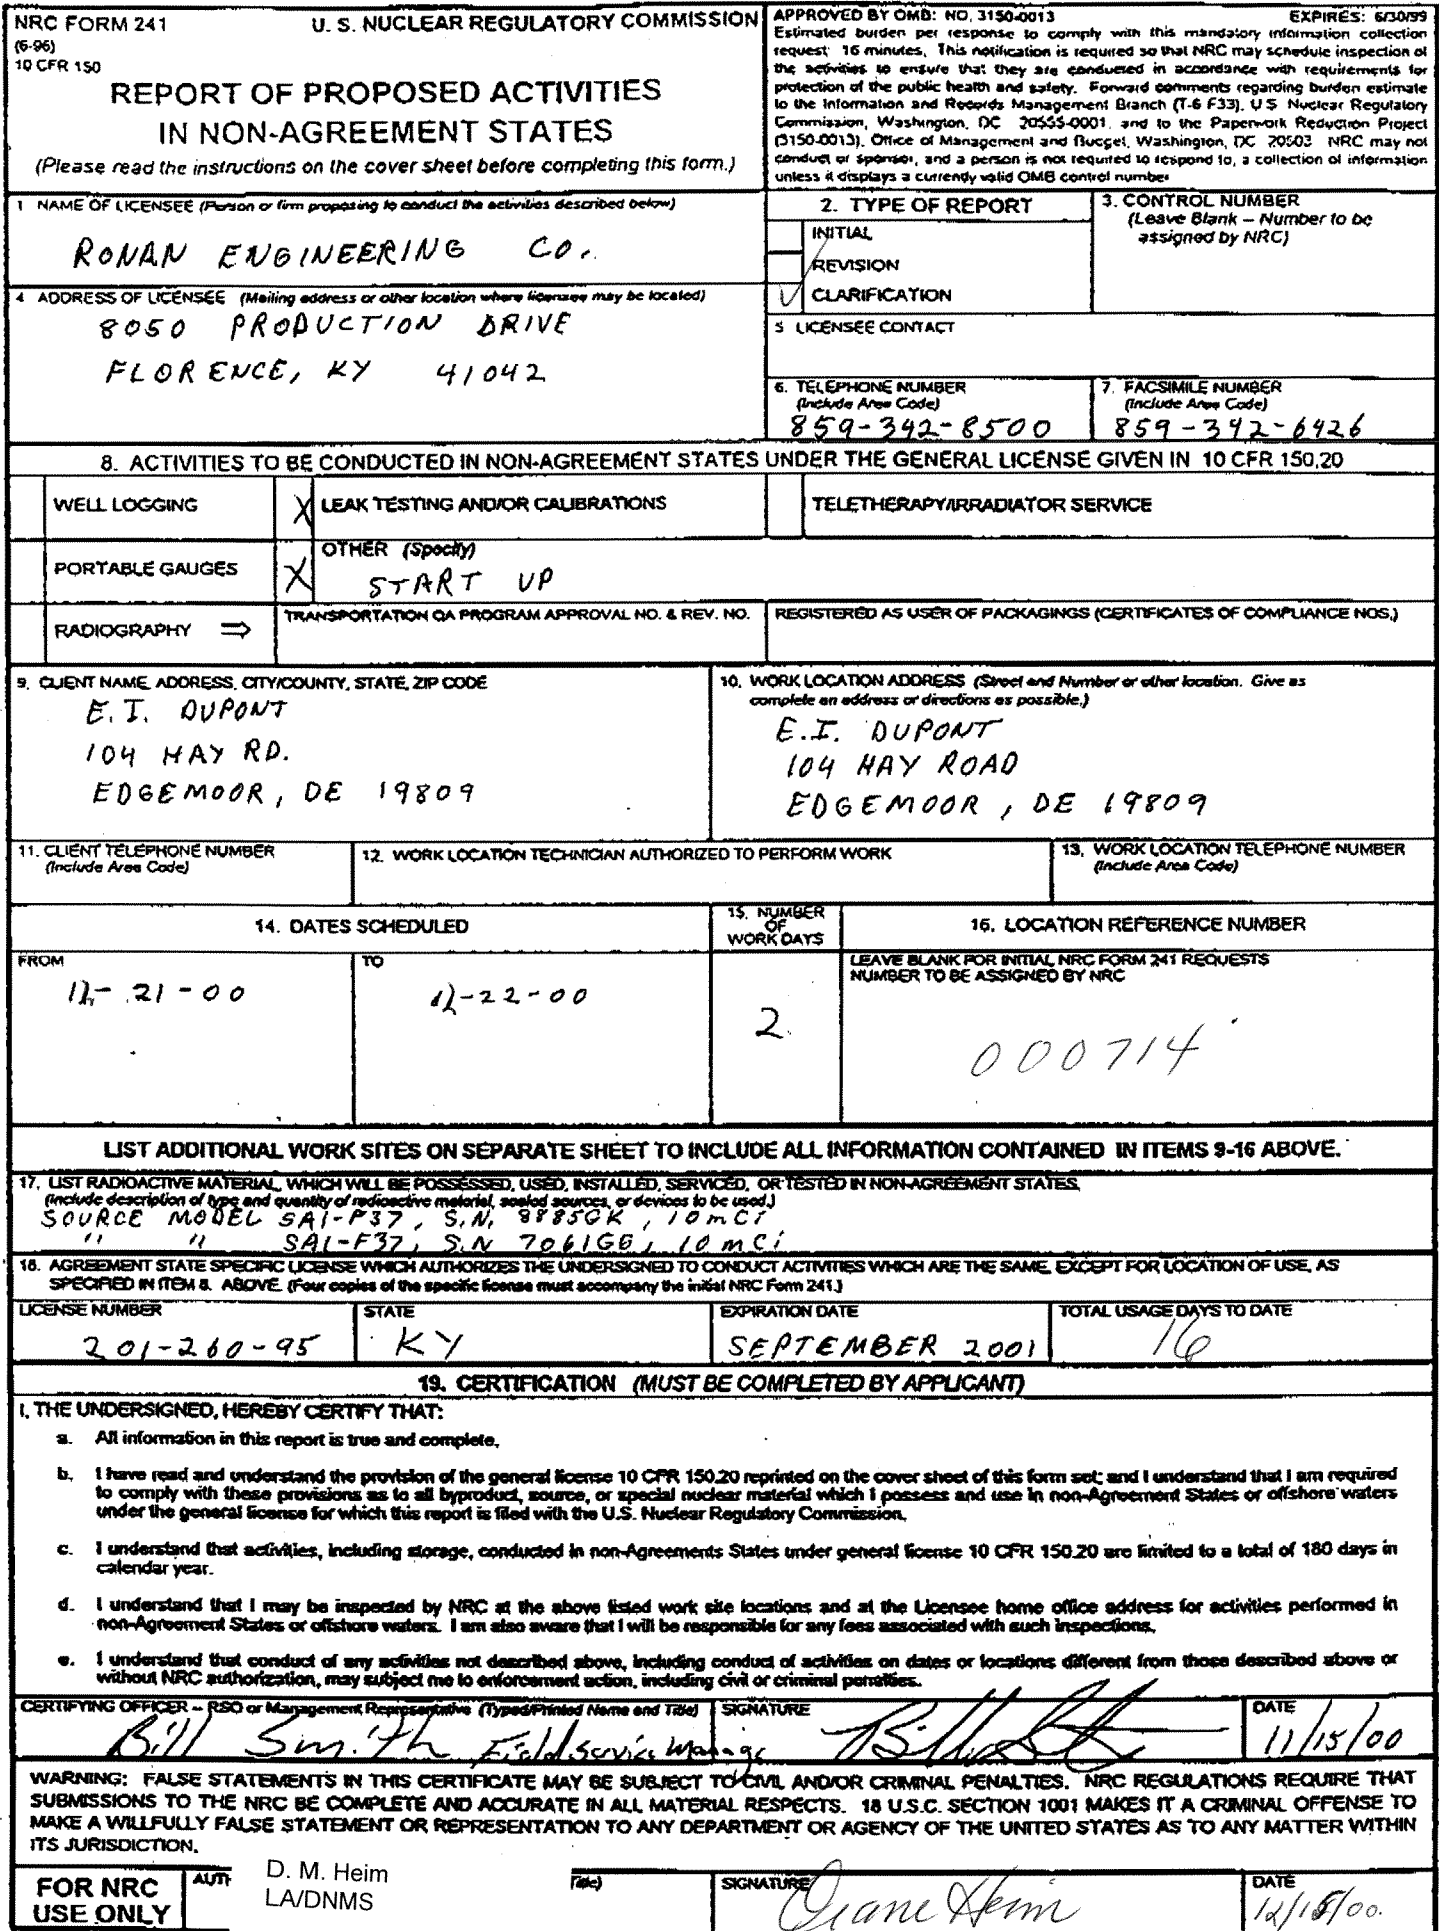 NRC FORM 241
(6-96)
10 CFR 150
U. S. NUCLEAR REGULATORY COMMISSION
REPORT OF PROPOSED ACTIVITIES
IN NON-AGREEMENT STATES
(Please read the instructions on the cover sheet before completing this form.)
APPROVED BY OMB: NO. 3150-0013 EXPIRES: 6/30/99
Estimated burden per response to comply with this mandatory information collection
request 16 minutes. This notification is required so that NRC may schedule inspection of
the activities to ensure that they are conducted in accordance with requirements for
protection of the public health and safety. Forward comments regarding burden estimate
to the Information and Records Management Branch (T-6 F33), U S Nuclear Regulatory
Commission, Washington, DC 20555-0001, and to the Paperwork Reduction Project
(3150-0013), Office of Management and Budget, Washington, DC 20503 NRC may not
conduct or sponsor, and a person is not required to respond to, a collection of information
unless it displays a currently valid OMB control number
1 NAME OF LICENSEE (Person or firm proposing to conduct the activities described below)
RONAN ENGINEERING CO.
2. TYPE OF REPORT
INITIAL
REVISION
CLARIFICATION
3. CONTROL NUMBER
(Leave Blank – Number to be
assigned by NRC)
4 ADDRESS OF LICENSEE (Mailing address or other location where licensee may be located)
8050 PRODUCTION DRIVE
FLORENCE, KY 41042
5 LICENSEE CONTACT
6. TELEPHONE NUMBER
(Include Area Code)
859-342-8500
7. FACSIMILE NUMBER
(Include Area Code)
859-342-6426
8. ACTIVITIES TO BE CONDUCTED IN NON-AGREEMENT STATES UNDER THE GENERAL LICENSE GIVEN IN 10 CFR 150.20
WELL LOGGING
X LEAK TESTING AND/OR CALIBRATIONS
TELETHERAPY/IRRADIATOR SERVICE
PORTABLE GAUGES
X OTHER (Specify)
START UP
RADIOGRAPHY ⇒
TRANSPORTATION QA PROGRAM APPROVAL NO. & REV. NO.
REGISTERED AS USER OF PACKAGINGS (CERTIFICATES OF COMPLIANCE NOS.)
9. CLIENT NAME, ADDRESS, CITY/COUNTY, STATE, ZIP CODE
E. I. DUPONT
104 HAY RD.
EDGEMOOR, DE 19809
10. WORK LOCATION ADDRESS (Street and Number or other location. Give as
complete an address or directions as possible.)
E.I. DUPONT
104 HAY ROAD
EDGEMOOR, DE 19809
11. CLIENT TELEPHONE NUMBER
(Include Area Code)
12. WORK LOCATION TECHNICIAN AUTHORIZED TO PERFORM WORK
13. WORK LOCATION TELEPHONE NUMBER
(Include Area Code)
14. DATES SCHEDULED
15. NUMBER
OF
WORK DAYS
16. LOCATION REFERENCE NUMBER
FROM
12-21-00
TO
12-22-00
2
LEAVE BLANK FOR INITIAL NRC FORM 241 REQUESTS
NUMBER TO BE ASSIGNED BY NRC
000714
LIST ADDITIONAL WORK SITES ON SEPARATE SHEET TO INCLUDE ALL INFORMATION CONTAINED IN ITEMS 9-16 ABOVE.
17. LIST RADIOACTIVE MATERIAL, WHICH WILL BE POSSESSED, USED, INSTALLED, SERVICED, OR TESTED IN NON-AGREEMENT STATES.
(Include description of type and quantity of radioactive material, sealed sources, or devices to be used.)
SOURCE MODEL SA1-F37, S.N. 8885GK, 10mCi
" " SA1-F37, S.N 7061GG, 10mCi
18. AGREEMENT STATE SPECIFIC LICENSE WHICH AUTHORIZES THE UNDERSIGNED TO CONDUCT ACTIVITIES WHICH ARE THE SAME, EXCEPT FOR LOCATION OF USE, AS
SPECIFIED IN ITEM 8. ABOVE. (Four copies of the specific license must accompany the initial NRC Form 241.)
LICENSE NUMBER
201-260-95
STATE
KY
EXPIRATION DATE
SEPTEMBER 2001
TOTAL USAGE DAYS TO DATE
16
19. CERTIFICATION (MUST BE COMPLETED BY APPLICANT)
I, THE UNDERSIGNED, HEREBY CERTIFY THAT:
a. All information in this report is true and complete.
b. I have read and understand the provision of the general license 10 CFR 150.20 reprinted on the cover sheet of this form set; and I understand that I am required
to comply with these provisions as to all byproduct, source, or special nuclear material which I possess and use in non-Agreement States or offshore waters
under the general license for which this report is filed with the U.S. Nuclear Regulatory Commission.
c. I understand that activities, including storage, conducted in non-Agreements States under general license 10 CFR 150.20 are limited to a total of 180 days in
calendar year.
d. I understand that I may be inspected by NRC at the above listed work site locations and at the Licensee home office address for activities performed in
non-Agreement States or offshore waters. I am also aware that I will be responsible for any fees associated with such inspections.
e. I understand that conduct of any activities not described above, including conduct of activities on dates or locations different from those described above or
without NRC authorization, may subject me to enforcement action, including civil or criminal penalties.
CERTIFYING OFFICER – RSO or Management Representative (Typed/Printed Name and Title)
Bill Smith Field Service Manage
SIGNATURE
DATE
11/15/00
WARNING: FALSE STATEMENTS IN THIS CERTIFICATE MAY BE SUBJECT TO CIVIL AND/OR CRIMINAL PENALTIES. NRC REGULATIONS REQUIRE THAT
SUBMISSIONS TO THE NRC BE COMPLETE AND ACCURATE IN ALL MATERIAL RESPECTS. 18 U.S.C. SECTION 1001 MAKES IT A CRIMINAL OFFENSE TO
MAKE A WILLFULLY FALSE STATEMENT OR REPRESENTATION TO ANY DEPARTMENT OR AGENCY OF THE UNITED STATES AS TO ANY MATTER WITHIN
ITS JURISDICTION.
FOR NRC
USE ONLY
AUTH
D. M. Heim
LA/DNMS
Title)
SIGNATURE
Diane Heim
DATE
12/15/00